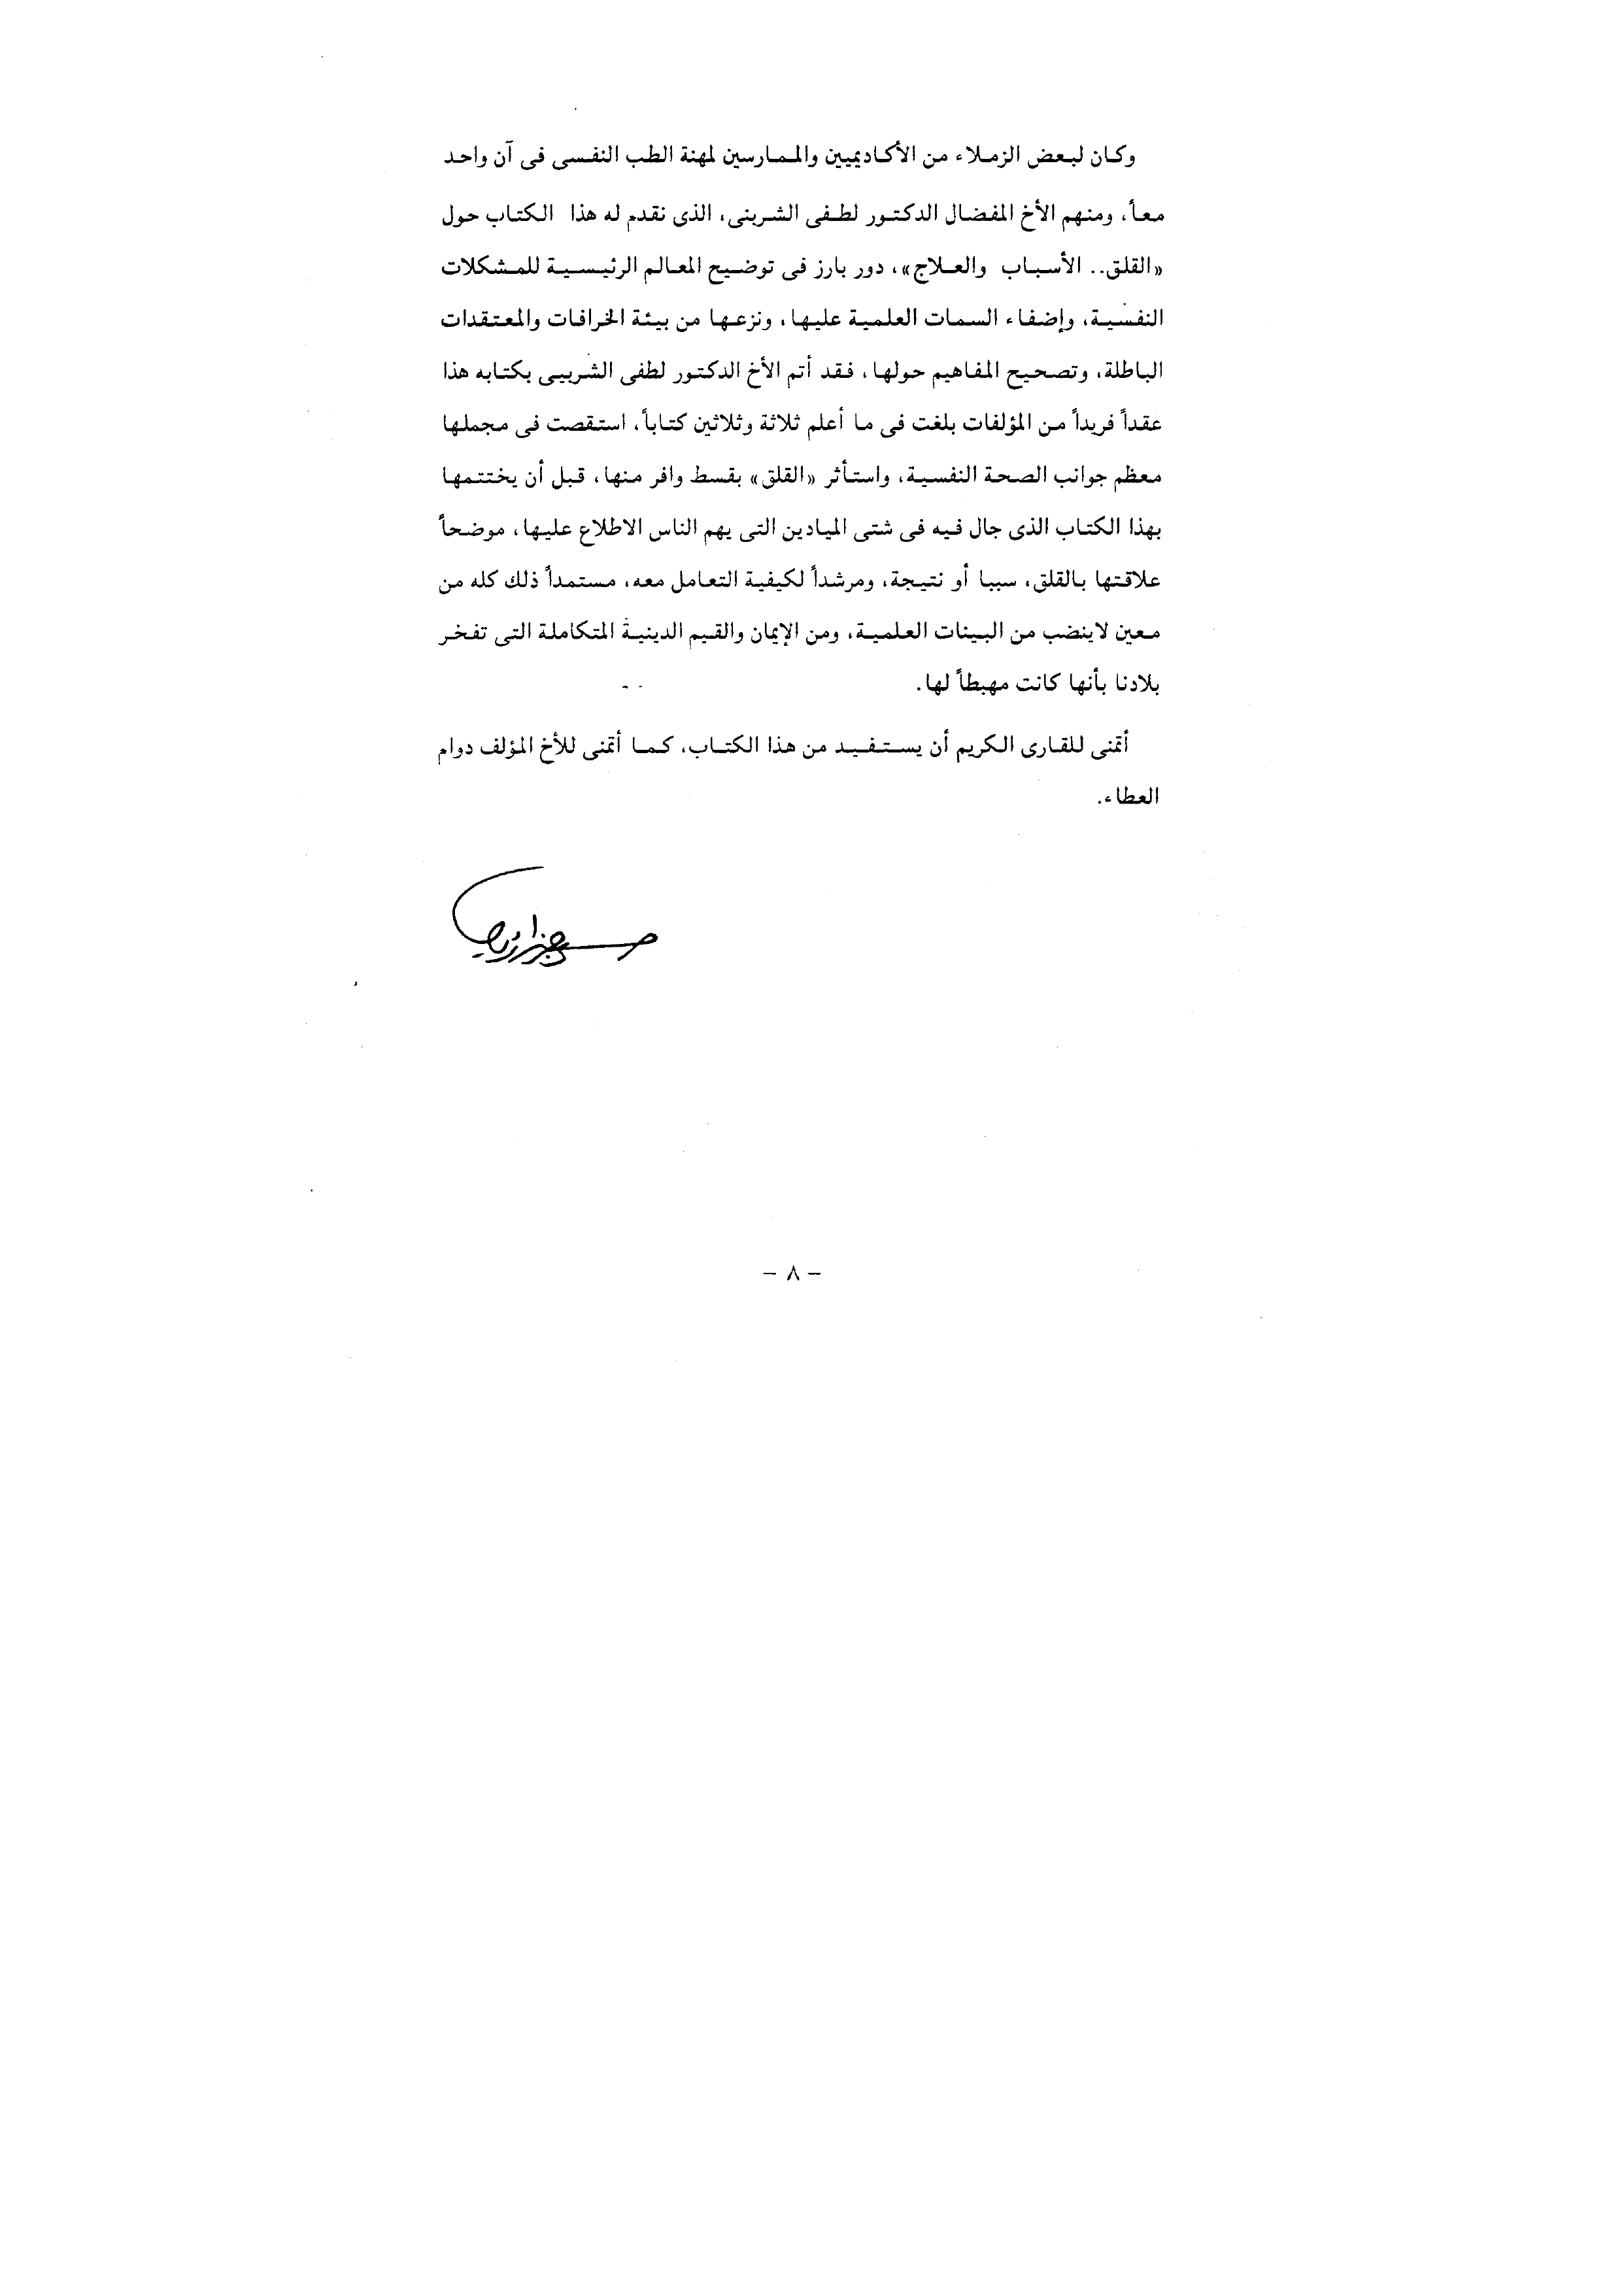 وكان لبعض الزملاء من الأكاديميين والممارسين لمهنة الطب النفسى فى آن واحد
معاً، ومنهم الأخ المفضال الدكتور لطفى الشربنى، الذى نقدم له هذا الكتاب حول
«القلق.. الأسباب والعلاج»، دور بارز فى توضيح المعالم الرئيسية للمشكلات
النفسية، وإضفاء السمات العلمية عليها، ونزعها من بيئة الخرافات والمعتقدات
الباطلة، وتصحيح المفاهيم حولها، فقد أتم الأخ الدكتور لطفى الشربيى بكتابه هذا
عقداً فريداً من المؤلفات بلغت فى ما أعلم ثلاثة وثلاثين كتاباً، استقصت فى مجملها
معظم جوانب الصحة النفسية، واستأثر «القلق» بقسط وافر منها، قبل أن يختتمها
بهذا الكتاب الذى جال فيه فى شتى الميادين التى يهم الناس الاطلاع عليها، موضحاً
علاقتها بالقلق، سببا أو نتيجة، ومرشداً لكيفية التعامل معه، مستمداً ذلك كله من
معين لاينضب من البينات العلمية، ومن الإيمان والقيم الدينية المتكاملة التى تفخر
بلادنا بأنها كانت مهبطاً لها.
أتمنى للقارى الكريم أن يستفيد من هذا الكتاب، كما أتمنى للأخ المؤلف دوام
العطاء.
– ٨ –